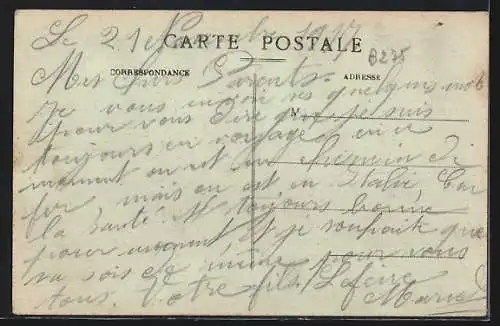 Le 21 Novembre 1917
CARTE POSTALE
B235
CORRESPONDANCE
ADRESSE
Mes Chers Parents
Je vous envoi ses quelques mots
pour vous dire que je suis
toujours en voyage en ce
moment on est en chemin de
fer mais on est en Italie, Car
la santé et toujours bonne
pour moment Et je souhaite que
sa sois de même pour vous
tous. Votre fils Lefevre
Marcel